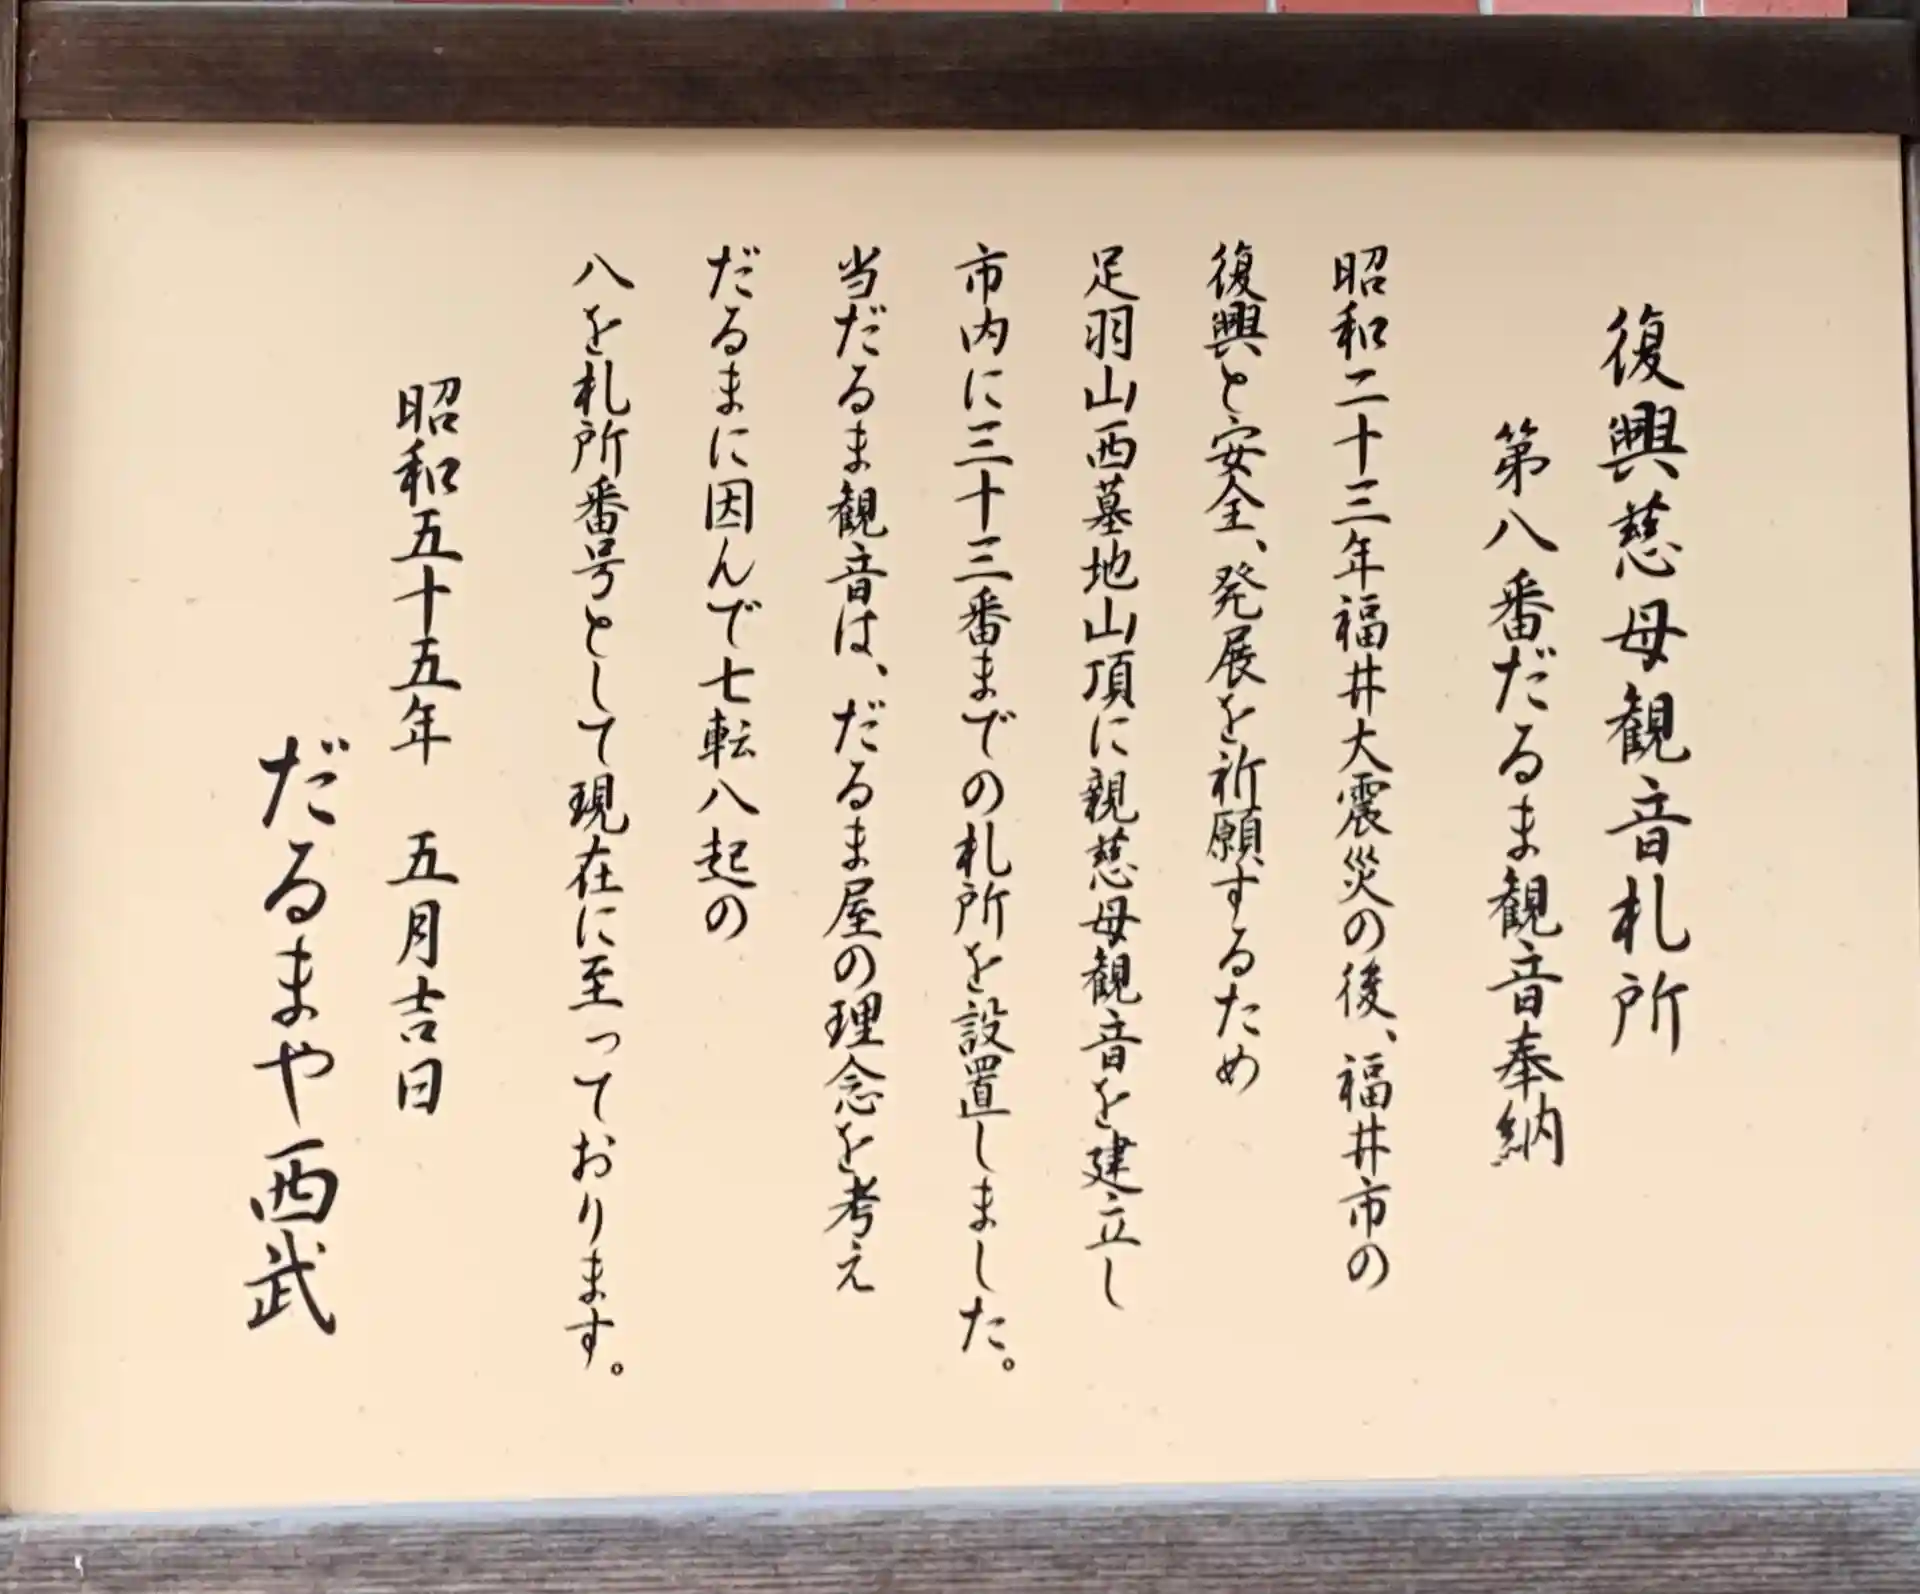 復興慈母観音札所
第八番だるま観音奉納
昭和二十三年福井大震災の後、福井市の
復興と安全、発展を祈願するため
足羽山西墓地山頂に親慈母観音を建立し
市内に三十三番までの札所を設置しました。
当だるま観音は、だるま屋の理念を考え
だるまに因んで七転八起の
八を札所番号として現在に至っております。
昭和五十五年 五月吉日
だるまや西武